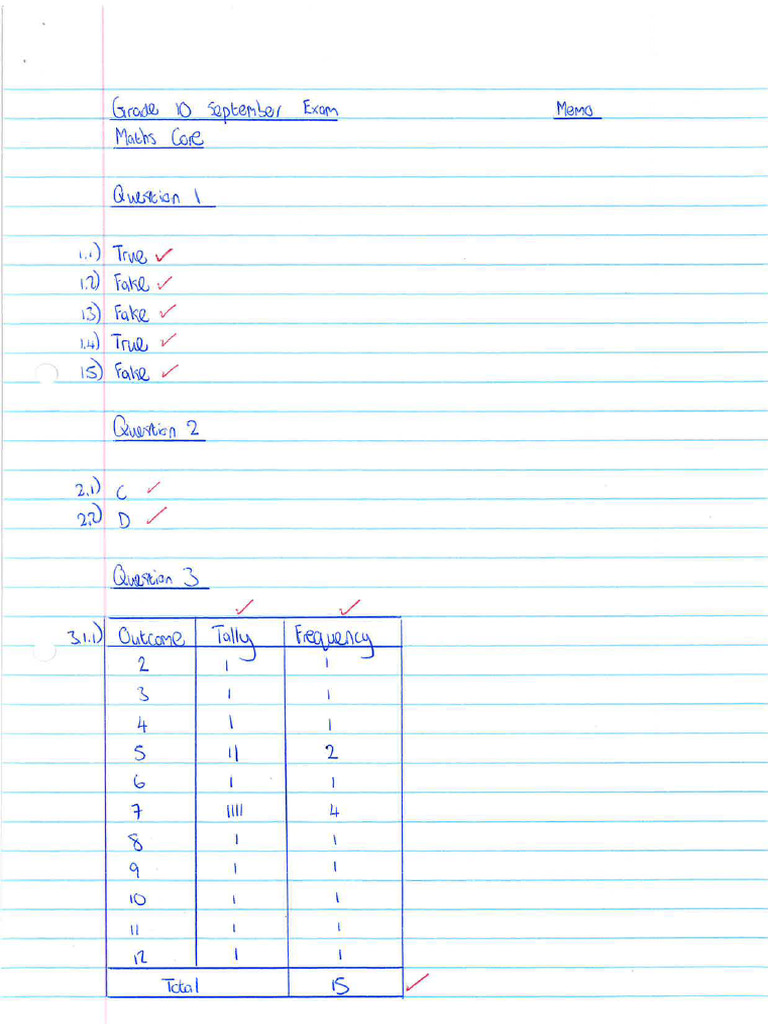 Grade 10 September Exam Memo
Maths Core
Question 1
1.1) True ✓
1.2) False ✓
1.3) False ✓
1.4) True ✓
1.5) False ✓
Question 2
2.1) C ✓
2.2) D ✓
Question 3
✓ ✓
3.1.1) Outcome Tally Frequency
2 | 1
3 | 1
4 | 1
5 || 2
6 | 1
7 |||| 4
8 | 1
9 | 1
10 | 1
11 | 1
12 | 1
Total 15 ✓